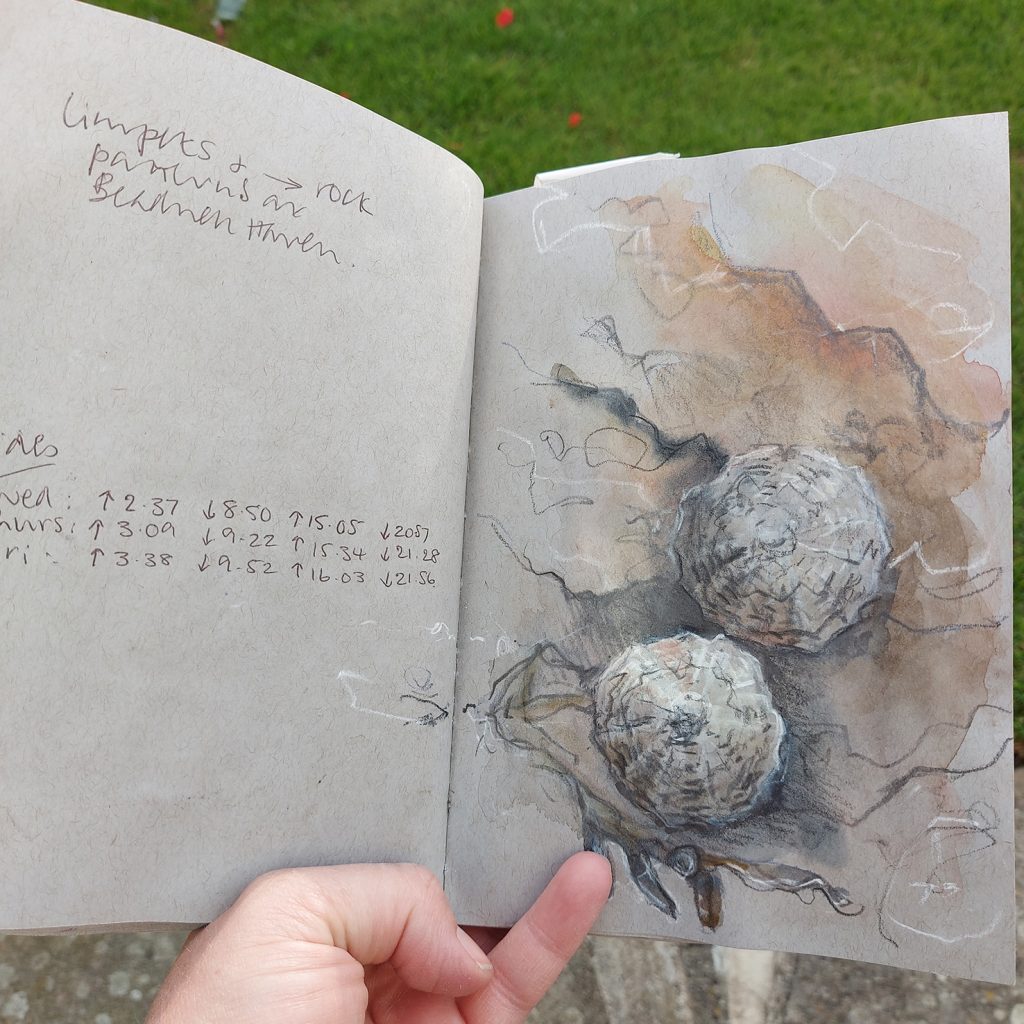 Limpets &
patterns → rock
at
Beadnell Haven.
ides
Wed: ↑ 2.37 ↓ 8.50 ↑ 15.05 ↓ 2057
hurs: ↑ 3.09 ↓ 9.22 ↑ 15.34 ↓ 21.28
ri: ↑ 3.38 ↓ 9.52 ↑ 16.03 ↓ 21.56